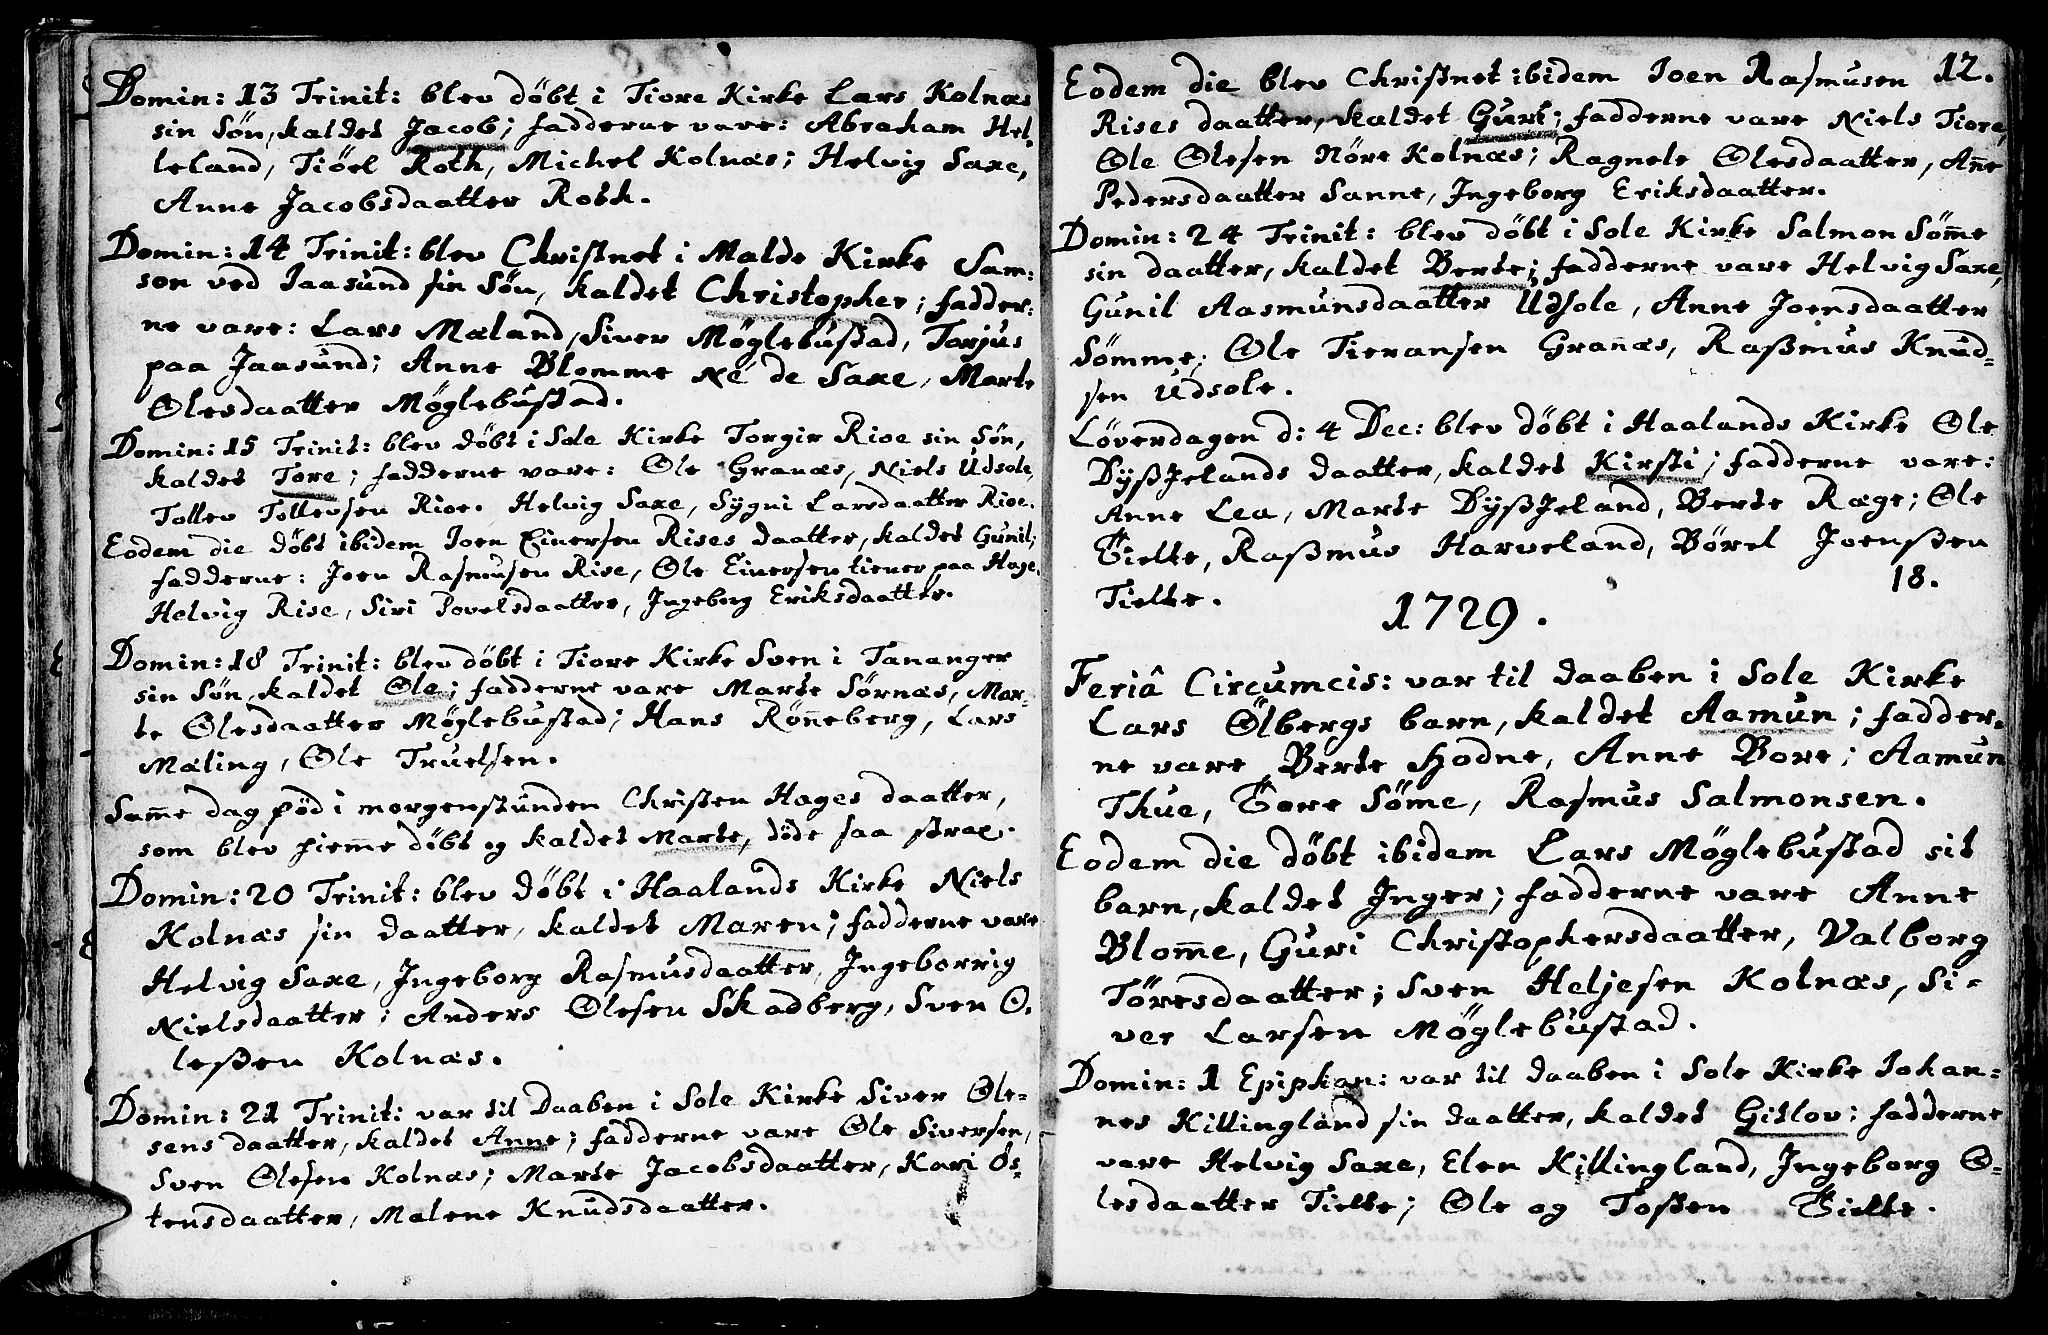 Domin: 13 Trinit: blev döbt i Tiore Kirke Lars Kolnæs
sin Søn, kaldet Jacob; fadderne vare: Abraham Hel-
leland, Tiöel Roth, Michel Kolnæs; Helvig Saxe,
Anne Jacobsdaatter Roth.
Domin: 14 Trinit: blev Christnet i Malde Kirke Sam:
son ved Jaasund sin Søn, kaldet Christopher; fadder:
ne vare: Lars Mæland, Siver Møglebustad, Torjus
paa Jaasund; Anne Blomme Né de Saxe, Marte
Olesdaatter Møglebustad.
Domin: 15 Trinit: blev döbt i Sole Kirke Torgir Rise sin Søn,
kaldet Tore; fadderne vare: Ole Granæs, Niels Udsole,
Tollev Tollevsen Rise. Helvig Saxe, Sygni Larsdaatter Rise.
Eodem die döbt ibidem Joen Einersen Rises daatter, kaldet Gunil;
fadderne: Joen Rasmusen Rise, Ole Einersen tiener paa Hage,
Helvig Rise, Siri Povelsdaatter, Ingeborg Eriksdaatter.
Domin: 18 Trinit: blev döbt i Tiore Kirke Sven i Tananger
sin Søn, kaldet Ole; fadderne vare Marte Sørnæs, Mar-
te Olesdaatter Møglebustad; Hans Rönneberg, Lars
Mæling, Ole Truelsen.
Samme dag fød i morgenstunden Christen Hages daatter,
som blev hiemme döbt og kaldet Marte, döde saa strax.
Domin: 20 Trinit: blev döbt i Haalands Kirke Niels
Kolnæs sin daatter, kaldet Maren; fadderne vare
Helvig Saxe, Ingeborg Rasmusdaatter, Ingeborrig
Nielsdaatter; Anders Olesen Skadberg, Sven O.
leßen Kolnæs.
Domin: 21 Trinit: var til Daaben i Sole Kirke Siver Ole-
sens daatter, kaldet Anne; fadderne vare Ole Siversen,
Sven Olesen Kolnæs; Marte Jacobsdaatter, Kari Os-
tensdaatter, Malene Knudsdaatter.
12.
Eodem die blev Christnet ibidem Joen Rasmusen
Rises daatter, kaldet Guri; fadderne vare Niels Tiore,
Ole Olesen Nöre Kolnæs; Ragnele Olesdaatter, Anne
Pedersdaatter Sanne, Ingeborg Eriksdaatter.
Domin: 24 Trinit: blev döbt i Sole Kirke Salmon Sömme
sin daatter, kaldet Berte; fadderne vare Helvig Saxe,
Gunil Aasmunsdaatter Udsole, Anne Joensdaatter
Sömme; Ole Tieransen Granæs, Raßmus Knud-
sen Udsole.
Löverdagen d: 4 Dec: blev döbt i Haalands Kirke Ole
Dyßjelands daatter, kaldet Kirsti; fadderne vare:
Anne Lea, Marte Dyßjeland, Berte Ræge; Ole
Tielte, Raßmus Harveland, Börel Joenßen
Tielte.
18.
1729.
Feriâ Circumcis: var til daaben i Sole Kirke
Lars Ölbergs barn, kaldet Aamun; fadder-
ne vare Berte Hodne, Anne Bore; Aamun
Thue, Tore Söme, Rasmus Salmonsen.
Eodem die döbt ibidem Lars Møglebustad sit
barn, kaldet Inger; fadderne vare Anne
Blomme, Guri Christophersdaatter, Valborg
Töresdaatter; Sven Heljesen Kolnæs, Si-
ver Larsen Møglebustad.
Domin: 1 Epiphan: var til daaben i Sole Kirke Johan-
nes Killingland sin daatter, kaldet Gitlov; fadderne
vare Helvig Saxe, Elen Killingland, Ingeborg O-
lesdaatter Tielte; Ole og Toßten Tielte.